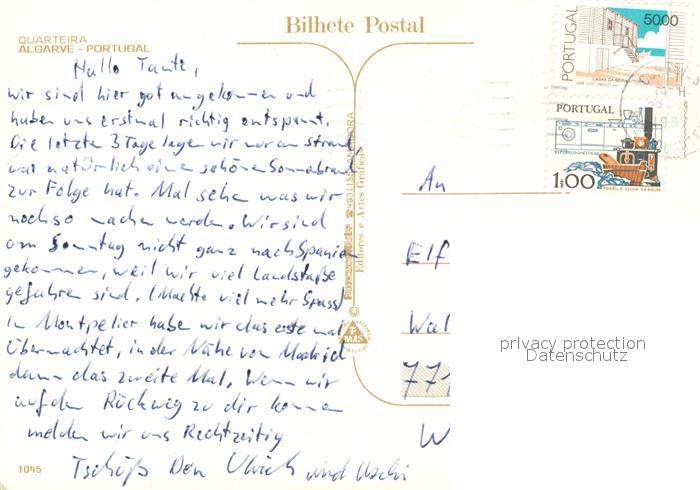 Bilhete Postal
QUARTEIRA
ALGARVE - PORTUGAL
PORTUGAL
5000
PORTUGAL
1$00
Hallo Tante,
wir sind hier got angekommen und
haben uns erstmal richtig entspannt.
Die letzten 3 Tage lagen wir nur am Strand
was natürlich eine schöne Sonnebrand
zur Folge hat. Mal sehen was wir
noch so machen werden. Wir sind
am Sonntag nicht ganz nach Spanien
gekommen, weil wir viel Landstaße
gefahren sind. (Machte viel mehr Spass)
In Montpelier habe wir das erste mal
übernachtet, in der Nähe von Madrid
dann das zweite Mal. Wenn wir
auf den Rückweg zu dir kommen
melden wir uns Rechtzeitig
Tschüß Dein Ulrich und Uschi
An
Elf
Wal
771
W
Editores e Artes Gráficas
privacy protection
Datenschutz
1045